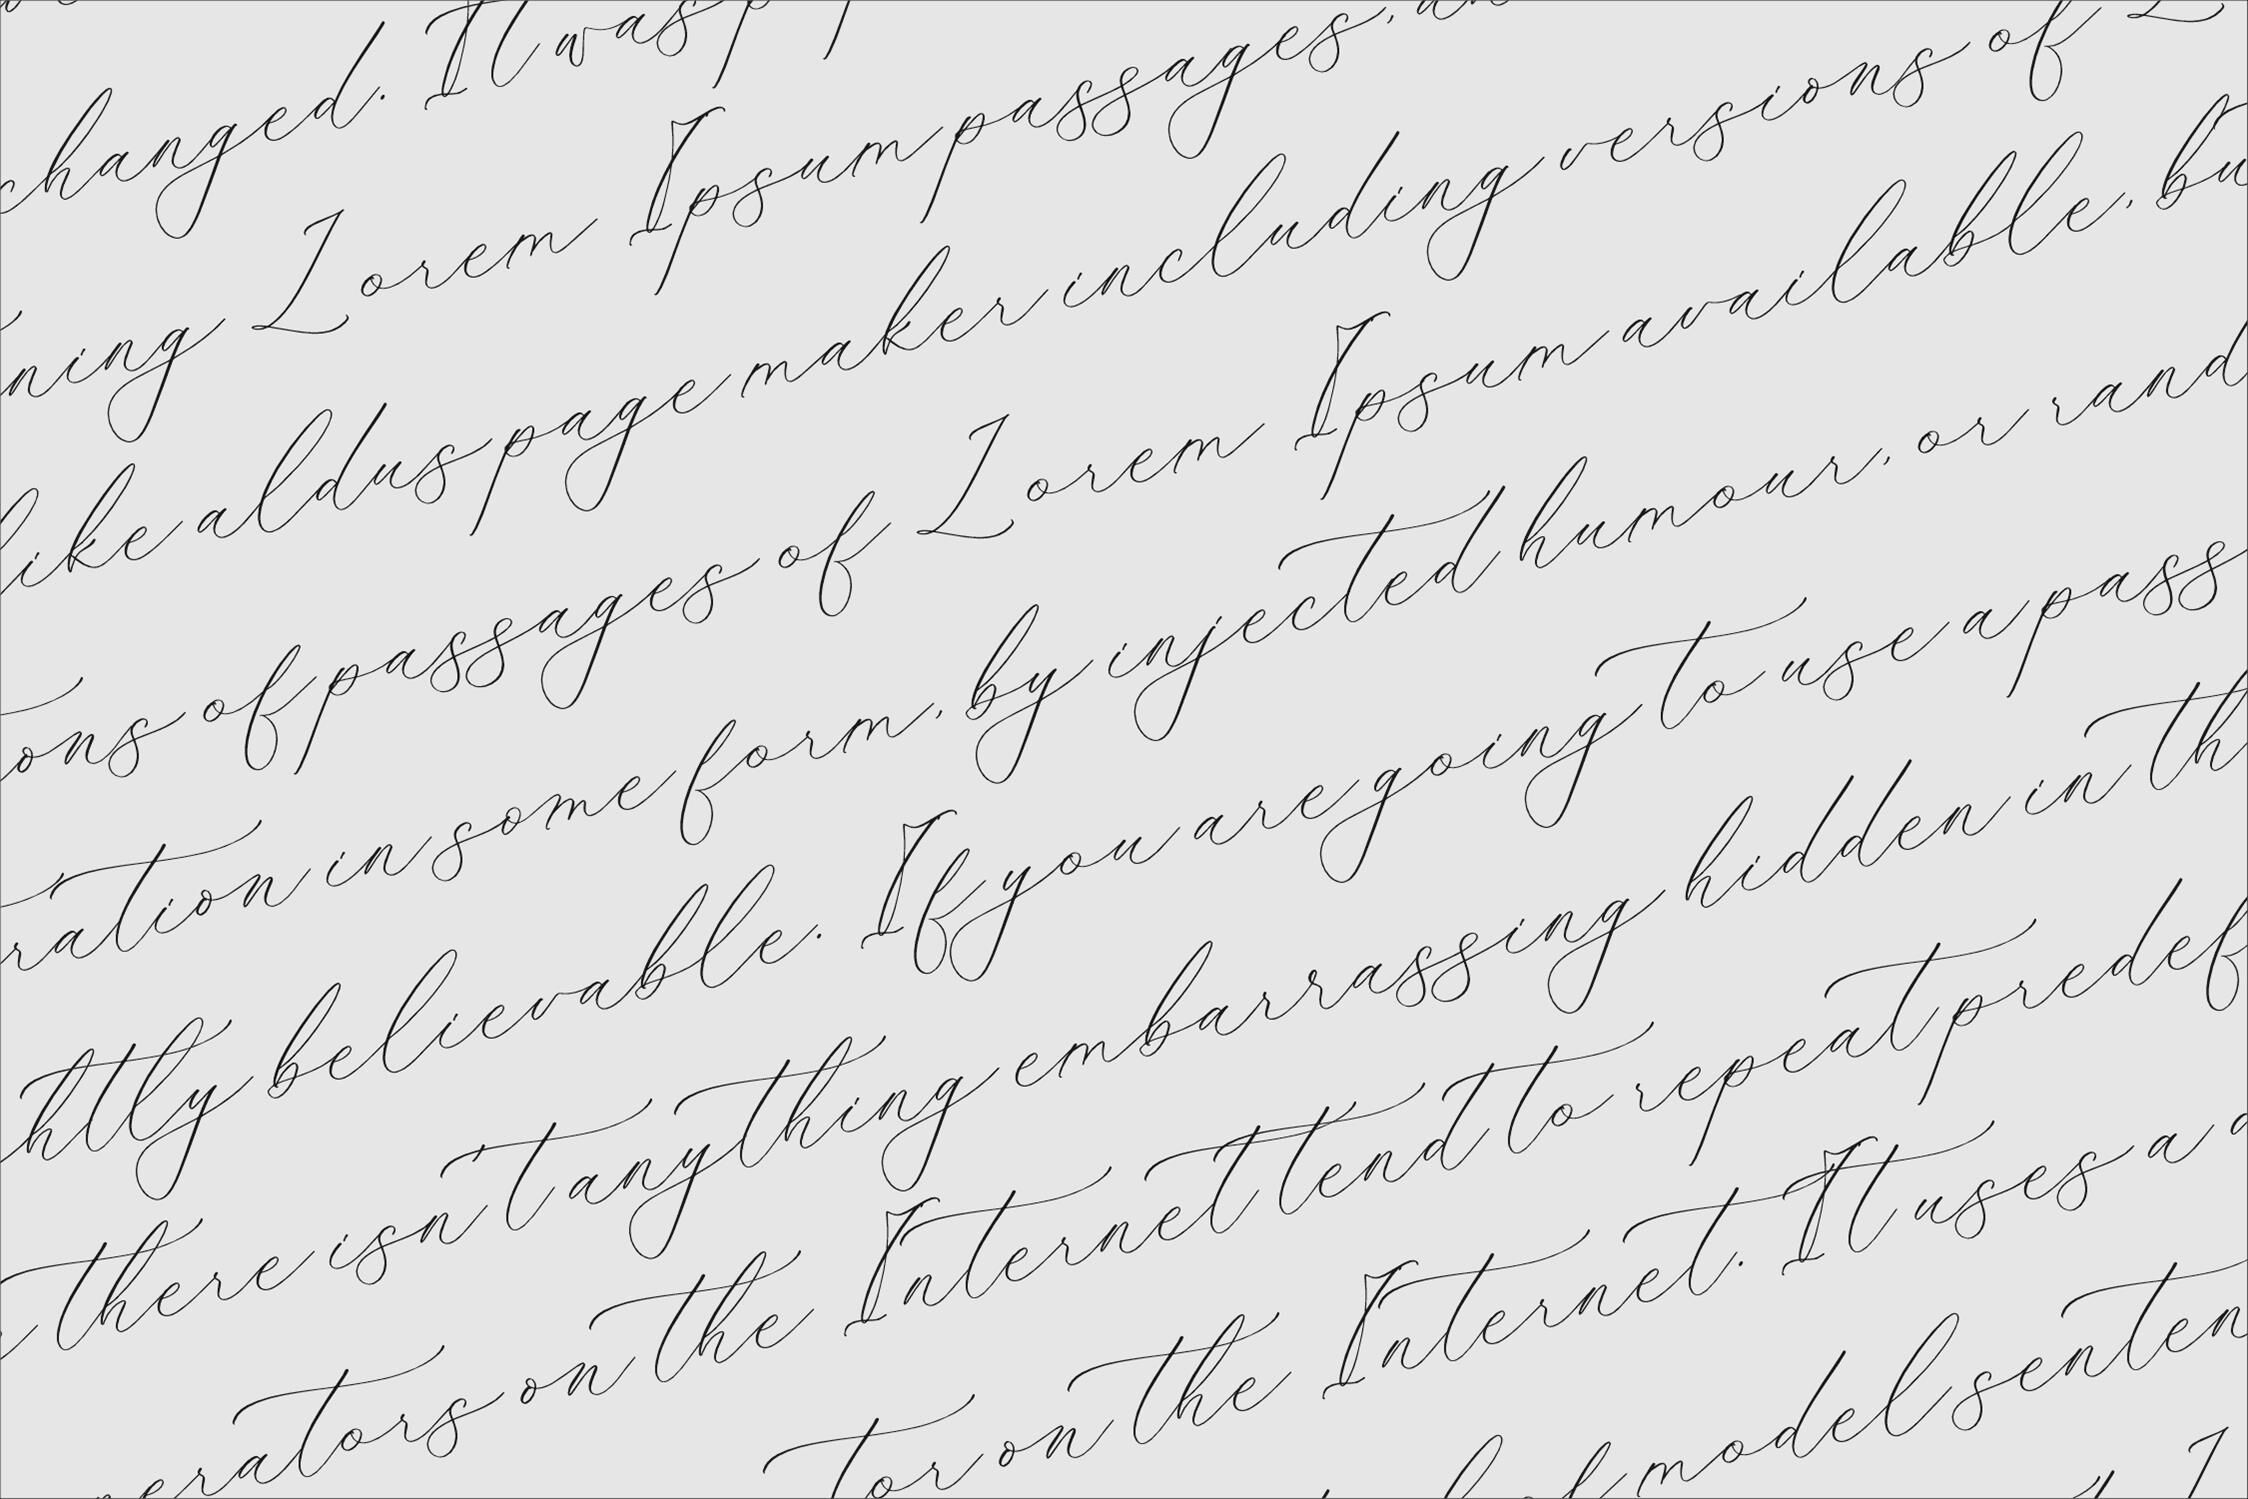 changed. It was p
ning Lorem Ipsum passages,
like aldus page maker including versions of L
ons of passages of Lorem Ipsum available, bu
ration in some form, by injected humour, or rand
htly believable. If you are going to use a pass
there isn't anything embarrassing hidden in th
nerators on the Internet tend to repeat predef
tor on the Internet. It uses a
model senten